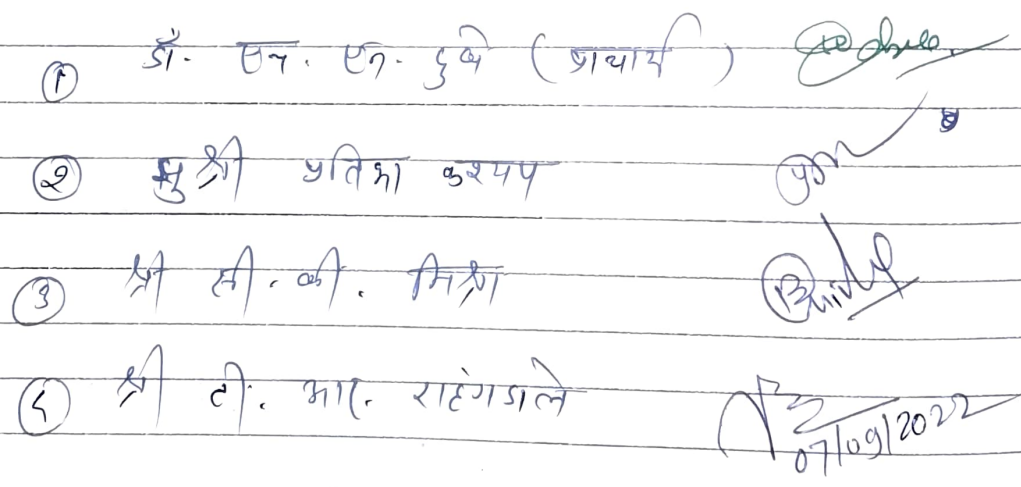 ① डॉ. एन. एन. दुबे (प्राचार्य)
② सुश्री प्रतिभा कश्यप
③ श्री सी. बी. मिश्रा
④ श्री टी. आर. राहंगडाले
07/09/2022